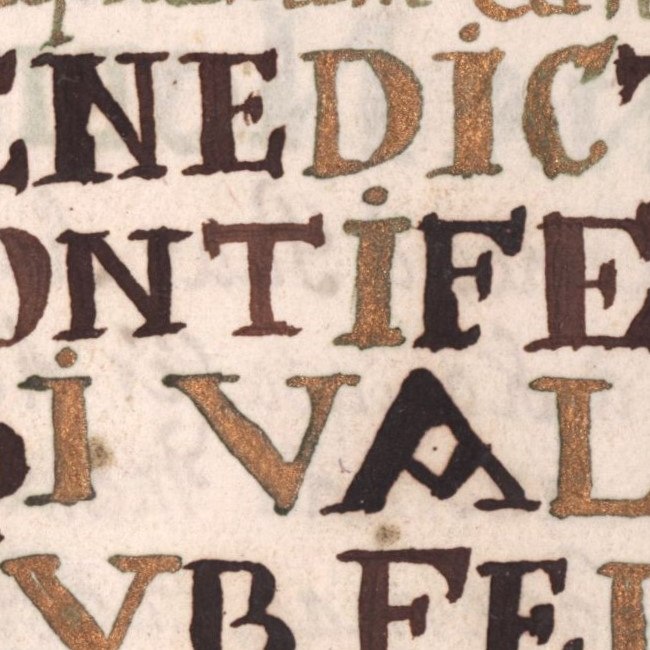 ENEDICT
ONTIFE
I VAL
VB FEL